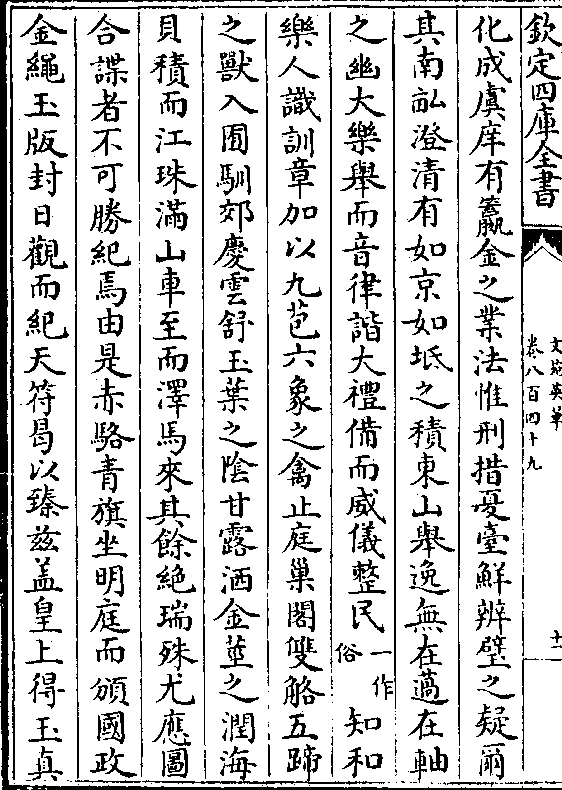 欽定四庫全書
文苑英華
卷八百四十九
十一
化成虞庠有籯金之業法惟刑措憂臺鮮辨璧之疑爾
其南畝澄清有如京如坻之積東山舉逸無在薖在軸
之幽大樂舉而音律諧大禮備而威儀整民一作俗知和
樂人識訓章加以九苞六象之禽止庭巢閣雙觡五蹄
之獸入囿馴郊慶雲舒玉葉之陰甘露洒金莖之潤海
貝積而江珠滿山車至而澤馬來其餘絶瑞殊尤應圖
合諜者不可勝紀焉由是赤駱青旗坐明庭而頒國政
金繩玉版封日觀而紀天符曷以臻兹盖皇上得玉真